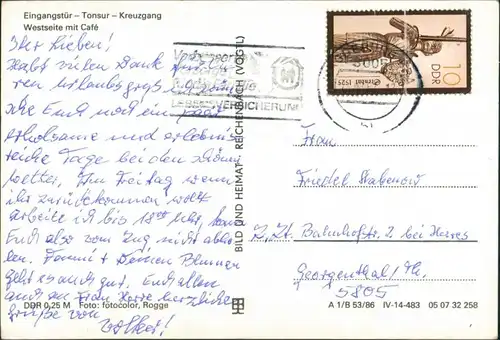 Eingangstür – Tonsur – Kreuzgang
Westseite mit Café
Ihr Lieben!
Habt vielen Dank für
ren Urlaubsgruß.
Euch noch ein paar
erholsame und erlebnis-
reiche Tage bei dem schönen
Wetter. Am Freitag wenn
ihr zurückkommen wollt
arbeite ich bis 18 00 Uhr, kann
Euch also vom Zug nicht abho-
len. Deinen Blumen
geht es auch gut. Euch allen
und an Frau Herre herzliche
Grüße von
Volker!
Vorsorgen
LEBENSVERSICHERUNG
BILD UND HEIMAT REICHENBACH (VOGTL)
10
DDR
1525
Frau
Friedel Stabenow
z. Zt. Bahnhofstr. 2 bei Herres
Georgenthal / Th.
5805
DDR 0,25 M Foto: fotocolor, Rogge
A 1/B 53/86 IV-14-483 05 07 32 258